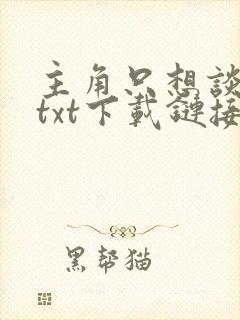 主角只想談
txt下載鏈接
黑帮猫